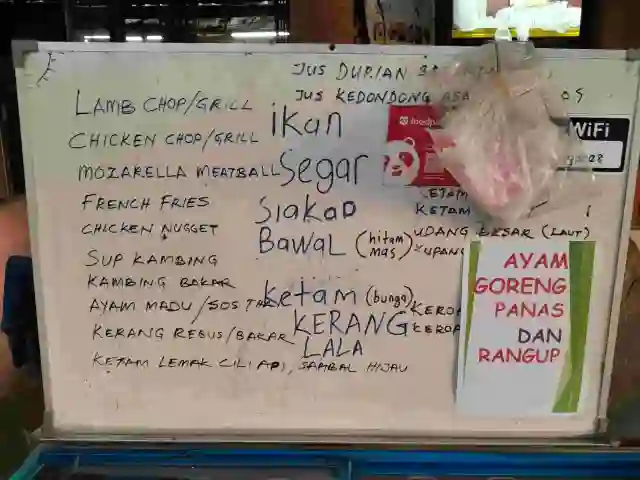 JUS DURIAN
JUS KEDONDONG ASA
LAMB CHOP/GRILL
CHICKEN CHOP/GRILL
MOZARELLA MEATBALL
FRENCH FRIES
CHICKEN NUGGET
SUP KAMBING
KAMBING BAKAR
AYAM MADU/SOS
KERANG REBUS/BAKAR
KETAM LEMAK CILI API, SAMBAL HIJAU
ikan
Segar
SIAKAP
BAWAL (hitam mas)
Ketam (bunga)
KERANG
LALA
foodpa
WiFi
KETAM
KETAM
UDANG BESAR (LAUT)
KUPANG
AYAM
GORENG
PANAS
DAN
RANGUP